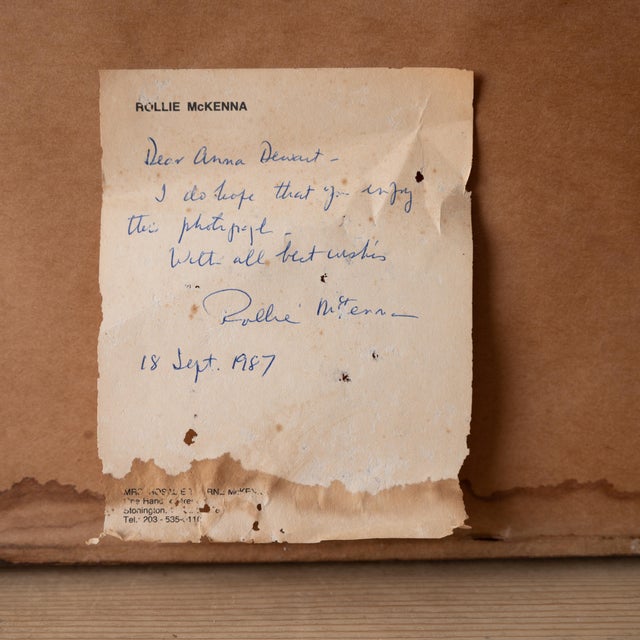 ROLLIE McKENNA
Dear Anna Dewart –
I do hope that you enjoy
this photograph.
With all best wishes
Rollie McKenna
18 Sept. 1987
Stonington,
Tel: 203 - 535-